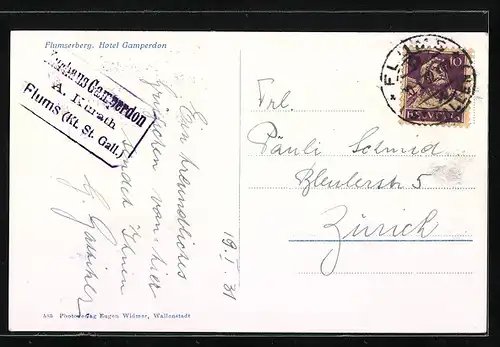 Flumserberg. Hotel Gamperdon
Kurhaus Gamperdon
A. Kurath
Flums (Kt. St. Gall.)
Ein freundliches
Grüsschen von hier
sendet Ihnen
19. I. 31
FLUMS
10
HELVETIA
Frl.
Pauli Schmid
Bleulerstr 5
Zürich
Photoverlag Eugen Widmer, Wallenstadt